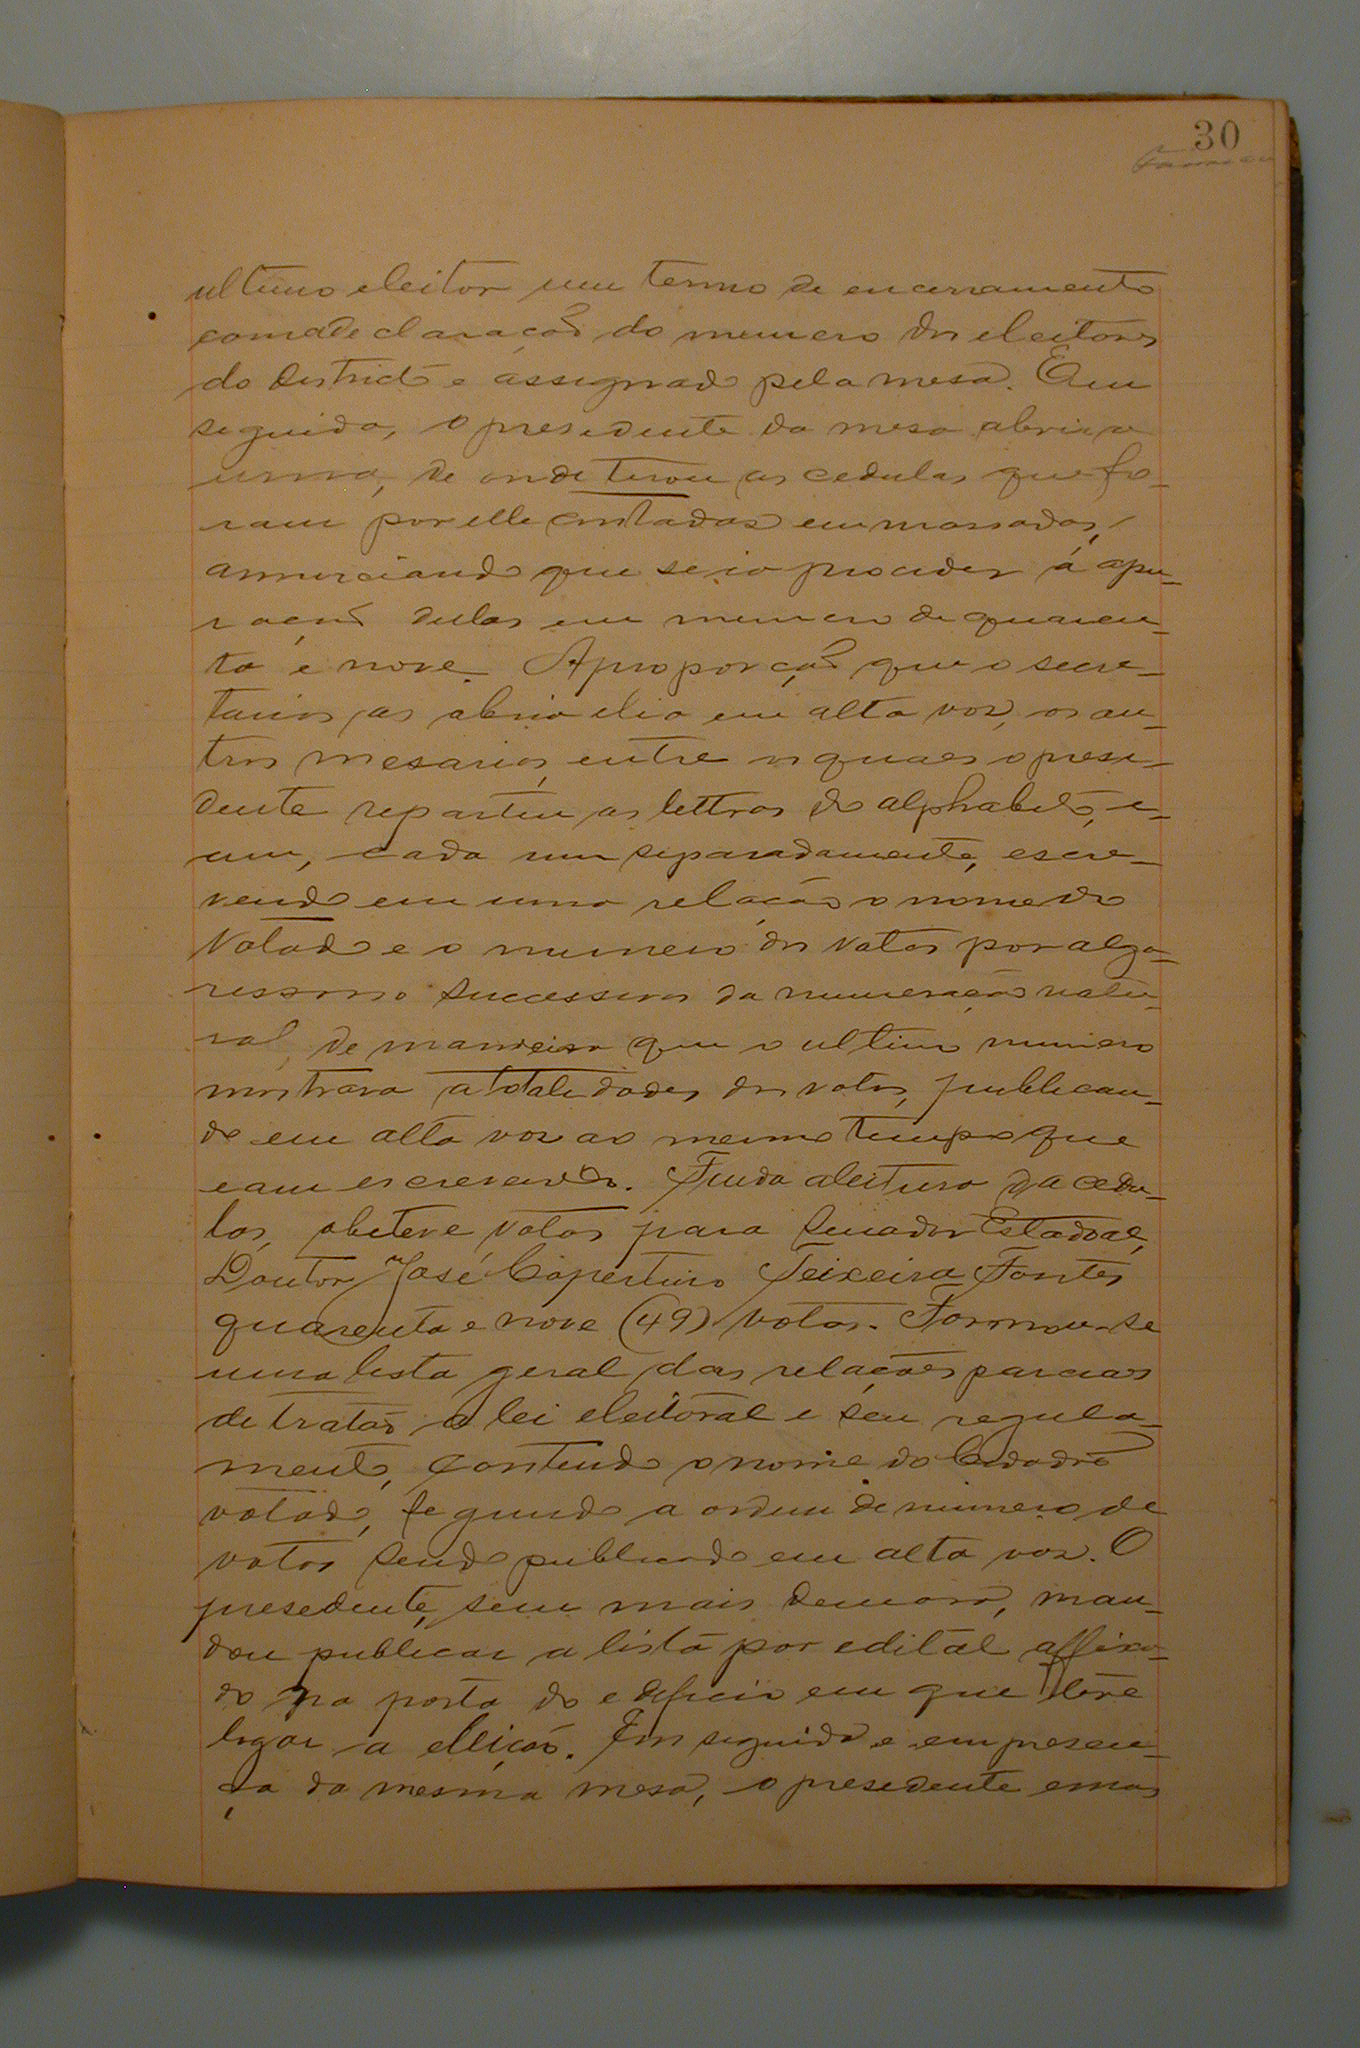 30
ultimo eleitor um termo de encerramento
com a declaração do numero dos eleitores
do districto e assignado pela mesa. Em
seguida, o presidente da mesa abriu a
urna, de onde tirou as cedulas que fo-
ram por elle contadas emmassadas,
annunciando que se ia proceder á apu-
ração dellas em numero de quaren-
ta e nove. A proporção que o secre-
tario as abria e lia em alta voz, os ou-
tros mesarios, entre os quaes o presi-
dente repartiu as lettras do alphabeto, i-
am, cada um separadamente, escre-
vendo em uma relação o nome do
votado e o numero dos votos por alga-
rismos successivos da numeração natu-
ral, de maneira que o ultimo numero
mostrava a totalidades dos votos, publican-
do em alta voz ao mesmo tempo que
eam escrevendo. Finda a leitura da cedu-
las, obteve votos para Senador Estadoal,
Doutor José Cupertino Teixeira Fontes
quarenta e nove (49) votos. Formou-se
uma lista geral das relações parciaes
de tratão a lei eleitoral e seu regula-
mento, contendo o nome do Cidadão
votado, segundo a ordem de numero de
votos sendo publicado em alta voz. O
presedente, sem mais demora, man-
dou publicar a lista por edital affixa-
do na porta do edificio em que teve
logar a elleição. Em seguida e em presen-
ça da mesma mesa, o presedente e mais